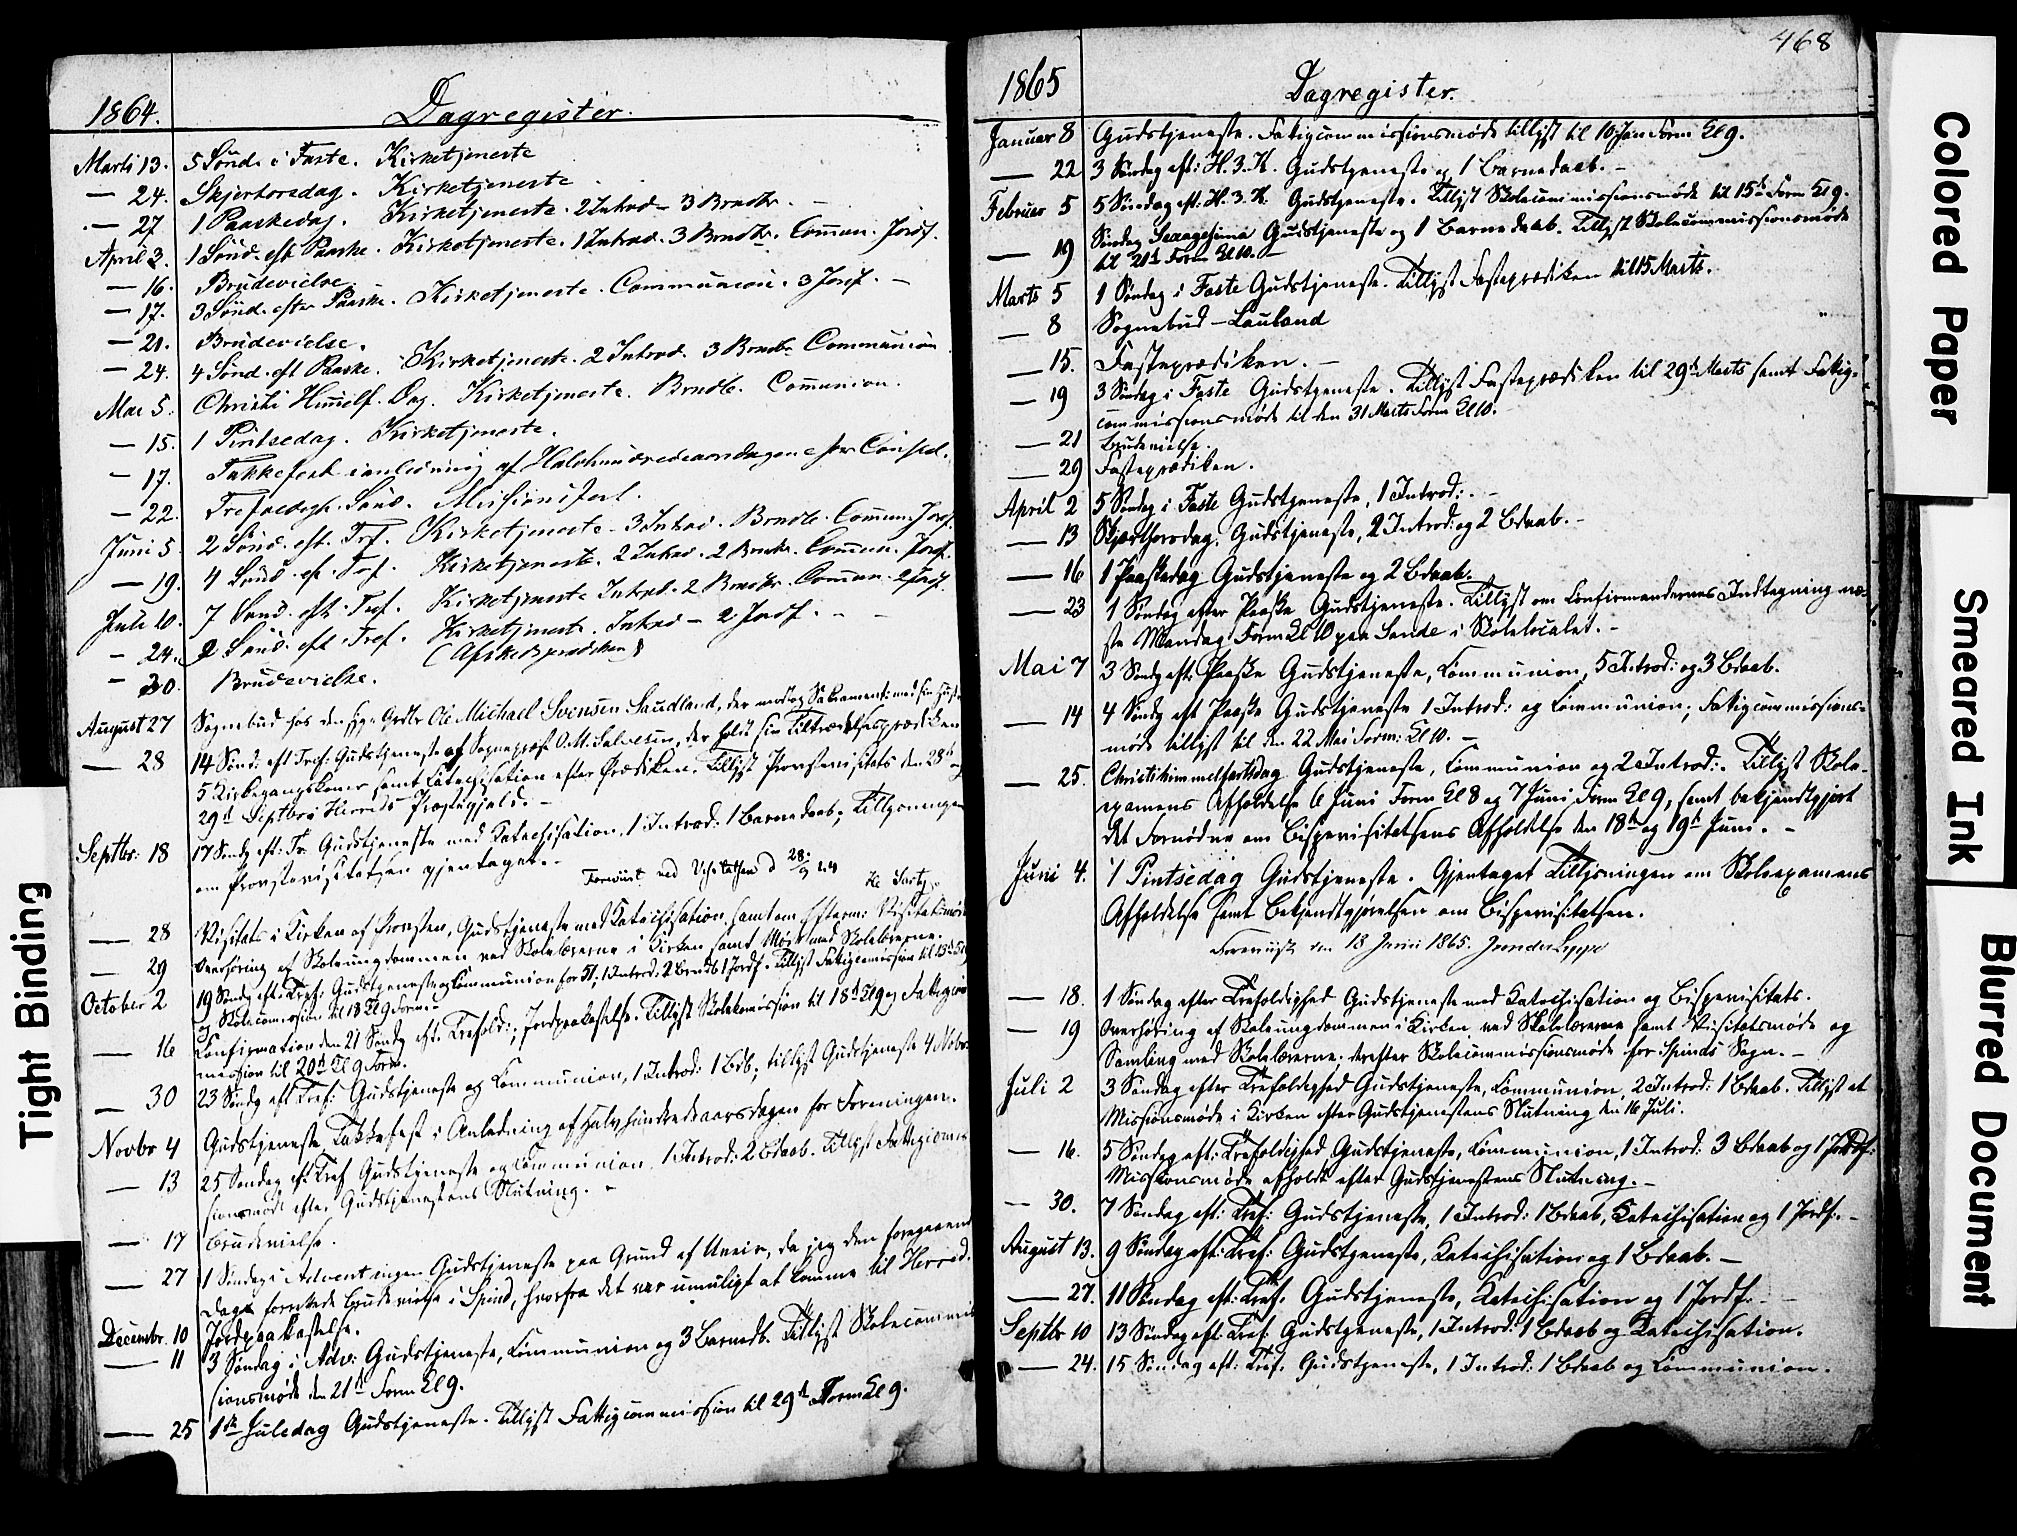 1864.
Dagregister.
Marts 13. 5 Sönd. i Faste. Kirketjeneste
— 24. Skjertorsdag. Kirketjeneste
— 27 1 Paaskedag. Kirketjeneste. 2 Introd. 3 Brndb. —
April 3. 1 Sönd. eft Paaske. Kirketjeneste. 1 Introd. 3 Brndb. Commun. Jordf.
— 16. Brudevielse.
— 17. 3 Sönd. efter Paaske. Kirketjeneste. Communion. 3 Jordf. —
— 21. Brudevielse.
— 24. 4 Sönd. eft Paaske. Kirketjeneste. 2 Introd. 3 Brndb. Communion
Mai 5. Christi Himelf. Dag. Kirketjeneste. Brndb. Communion.
— 15. 1 Pintsedag. Kirketjeneste.
— 17. Takkefest i anledning af Halvhundredeaarsdagen for
— 22. Trefoldigh. Sönd. Missionsfest.
Juni 5. 2 Sönd. eft. Tref. Kirketjeneste. 3 Introd. Brndb. Commun. Jordf.
— 19. 4 Sönd. ef. Tref. Kirketjeneste. 2 Introd. 2 Brndb. Commun. Jordf.
Juli 10. 7 Sönd. eft. Tref. Kirketjeneste Introd. 2 Brndb. Commun. 2 Jordf.
— 24. 9 Sönd. eft. Tref. Kirketjeneste. Introd — 2 Jordf. — —
(Afskedsprædiken)
— 30. Brudevielse.
August 27 Sognebud hos den syge Grdbr Ole Michael Svensen Saudland, der modtog Sakrament. med sin Hustru
— 28 14 Sönd: eft Tref: Gudstjeneste af Sogneprest O. M. Salvesen, der holdt sin Tiltrædelsesprædiken
5 Kirkegangskoner samt Katechisation efter Prædiken. Tillyst Provstevisitats den 28d og
29d Septbr i Herreds Præstegjeld. —
Septbr: 18 17 Søndg eft: Tr: Gudstjeneste med Katechisation. 1 Introd: 1 Barnedaab; Tillysningen
om Provstevisitatsen gjentaget. —
Forevist ved Visitatsen d 28/9 64
— 28 Visitats i Kirken af Provsten, Gudstjeneste med Katechisation, samt om Efterm: Visitatsmøde
— 29 Overhøring af Skoleungdommen ved Skolelærerne i Kirken samt Møde med Skolelærerne.
October 2 19 Søndg eft: Tref: Gudstjeneste og Communion for 51; 1 Introd: 2 Brndb 1 Jordf. Tillyst Fatigcomission til 13d Kl 9
og Skolecomission til 18 Kl 9 Form: —
— 16 Confirmation den 21 Søndg eft: Trefold:; Jordpaakastelse. Tillyst Skolekomission til 18d Kl 9 og Fatigcom
mission til 20d Kl 9 Form.
— 30 23 Søndg eft Tref: Gudstjeneste og Communion, 1 Introd: 1 Bdb; tillyst Gudstjeneste 4 Novbr.
Novbr 4 Gudstjeneste Takkefest i Anledning af Halvhundredeaarsdagen for Foreningen.
— 13 25 Søndag eft Tref Gudstjeneste og Communion. 1 Introd: 2 Bdaab. Tillyst Fattigcomis
sionsmøde efter Gudstjenestens Slutning. —
— 17 Brudevielse.
— 27 1 Søndag i Advent ingen Gudstjeneste paa Grund af Uveir, da jeg den foregaaend
Dag forrettede Brudevielse i Spind, hvorfra det var umuligt at komme til Herred.
Decembr. 10 Jordpaakastelse.
— 11 3 Søndag i Adv: Gudstjeneste, Communion og 3 Barnedb. Tillyst Skolecommis
sionsmøde den 21d Form Kl 9.
— 25 1ste Juledag Gudstjeneste. Tillyst Fattigcommission til 29d Form Kl 9.
468
1865
Dagregister.
Januar 8 Gudstjeneste. Fatigcommissionsmøde tillyst til 10 Jan Form Kl 9.
— 22 3 Søndag eft: H. 3. K. Gudstjeneste og 1 Barnedaab. —
Februar 5 5 Søndag eft: H. 3. K. Gudstjeneste. Tillyst Skolecommissionsmøde til 15d Form Kl 9.
— 19 Søndag Sexagesima Gudstjeneste og 1 Barnedaab. Tillyst Skolecommissionsmøde
til 21d Form Kl 10. —
Marts 5 1 Søndag i Faste Gudstjeneste. Tillyst Fasteprædiken til 15 Marts.
— 8 Sognebud — Lauland
— 15. Fasteprædiken. —
— 19 3 Søndag i Faste Gudstjeneste. Tillyst Fasteprædiken til 29d Marts samt Fatig-
commissionsmøde til den 31 Marts Form Kl 10.
— 21 Brudevielse.
— 29 Fasteprædiken.
April 2 5 Søndag i Faste Gudstjeneste, 1 Introd: —
— 13 Skjærthorsdag. Gudstjeneste, 2 Introd: og 2 Bdaab. —
— 16 1 Paaskedag Gudstjeneste og 2 Bdaab.
— 23 1 Søndag efter Paaske Gudstjeneste. Tillyst om Confirmandernes Indtagning næ-
ste Mandag Form Kl 10 paa Sande i Skolelocalet. —
Mai 7 3 Søndg eft: Paaske Gudstjeneste, Communion, 5 Introd: og 3 Bdaab.
— 14 4 Søndg eft Paaske Gudstjeneste 1 Introd: og Communion; Fatigcommissions-
møde tillyst til den 22 Mai Form: Kl 10. —
— 25. Christihimmelfartsdag Gudstjeneste, Communion og 2 Introd:. Tillyst Skole-
examens Afholdelse 6 Juni Form Kl 8 og 7 Juni Form Kl 9, samt bekjendtgjort
det Fornødne om Bispevisitatsens Afholdelse den 18d og 19d Juni. —
Juni 4. 1 Pintsedag Gudstjeneste. Gjentaget Tillysningen om Skoleexamens
Afholdelse samt Bekjendtgjørelsen om Bispevisitatsen.
Forevist den 18 Juni 1865.
— 18. 1 Søndag efter Trefoldighed Gudstjeneste med Katechisation og Bispevisitats.
— 19 Overhøring af Skoleungdommen i Kirken ved Skolelærerne samt Visitatsmøde og
Samling med Skolelærerne; derefter Skolecommissionsmøde for Spinds Sogn. —
Juli 2 3 Søndag efter Trefoldighed Gudstjeneste, Communion, 2 Introd: 1 Bdaab. Tillyst et
Missionsmøde i Kirken efter Gudstjenestens Slutning den 16 Juli.
— 16. 5 Søndag eft: Trefoldighed Gudstjeneste, Communion, 1 Introd: 3 Bdaab og 1 Jordf:
Missionsmøde afholdt efter Gudstjenestens Slutning. —
— 30. 7 Søndag eft: Tref: Gudstjeneste, 1 Introd: 1 Bdaab, Katechisation og 1 Jordf. —
August 13. 9 Søndag eft: Tref: Gudstjeneste, Katechisation og 1 Bdaab. —
— 27. 11 Søndag eft: Tref. Gudstjeneste, Katechisation og 1 Jordf. —
Septbr 10 13 Søndag eft: Tref: Gudstjeneste, 1 Introd: 1 Bdaab og Katechisation.
— 24. 15 Søndag eft: Tref. Gudstjeneste, 1 Introd: 1 Bdaab og Communion.
Tight Binding
Colored Paper
Smeared Ink
Blurred Document